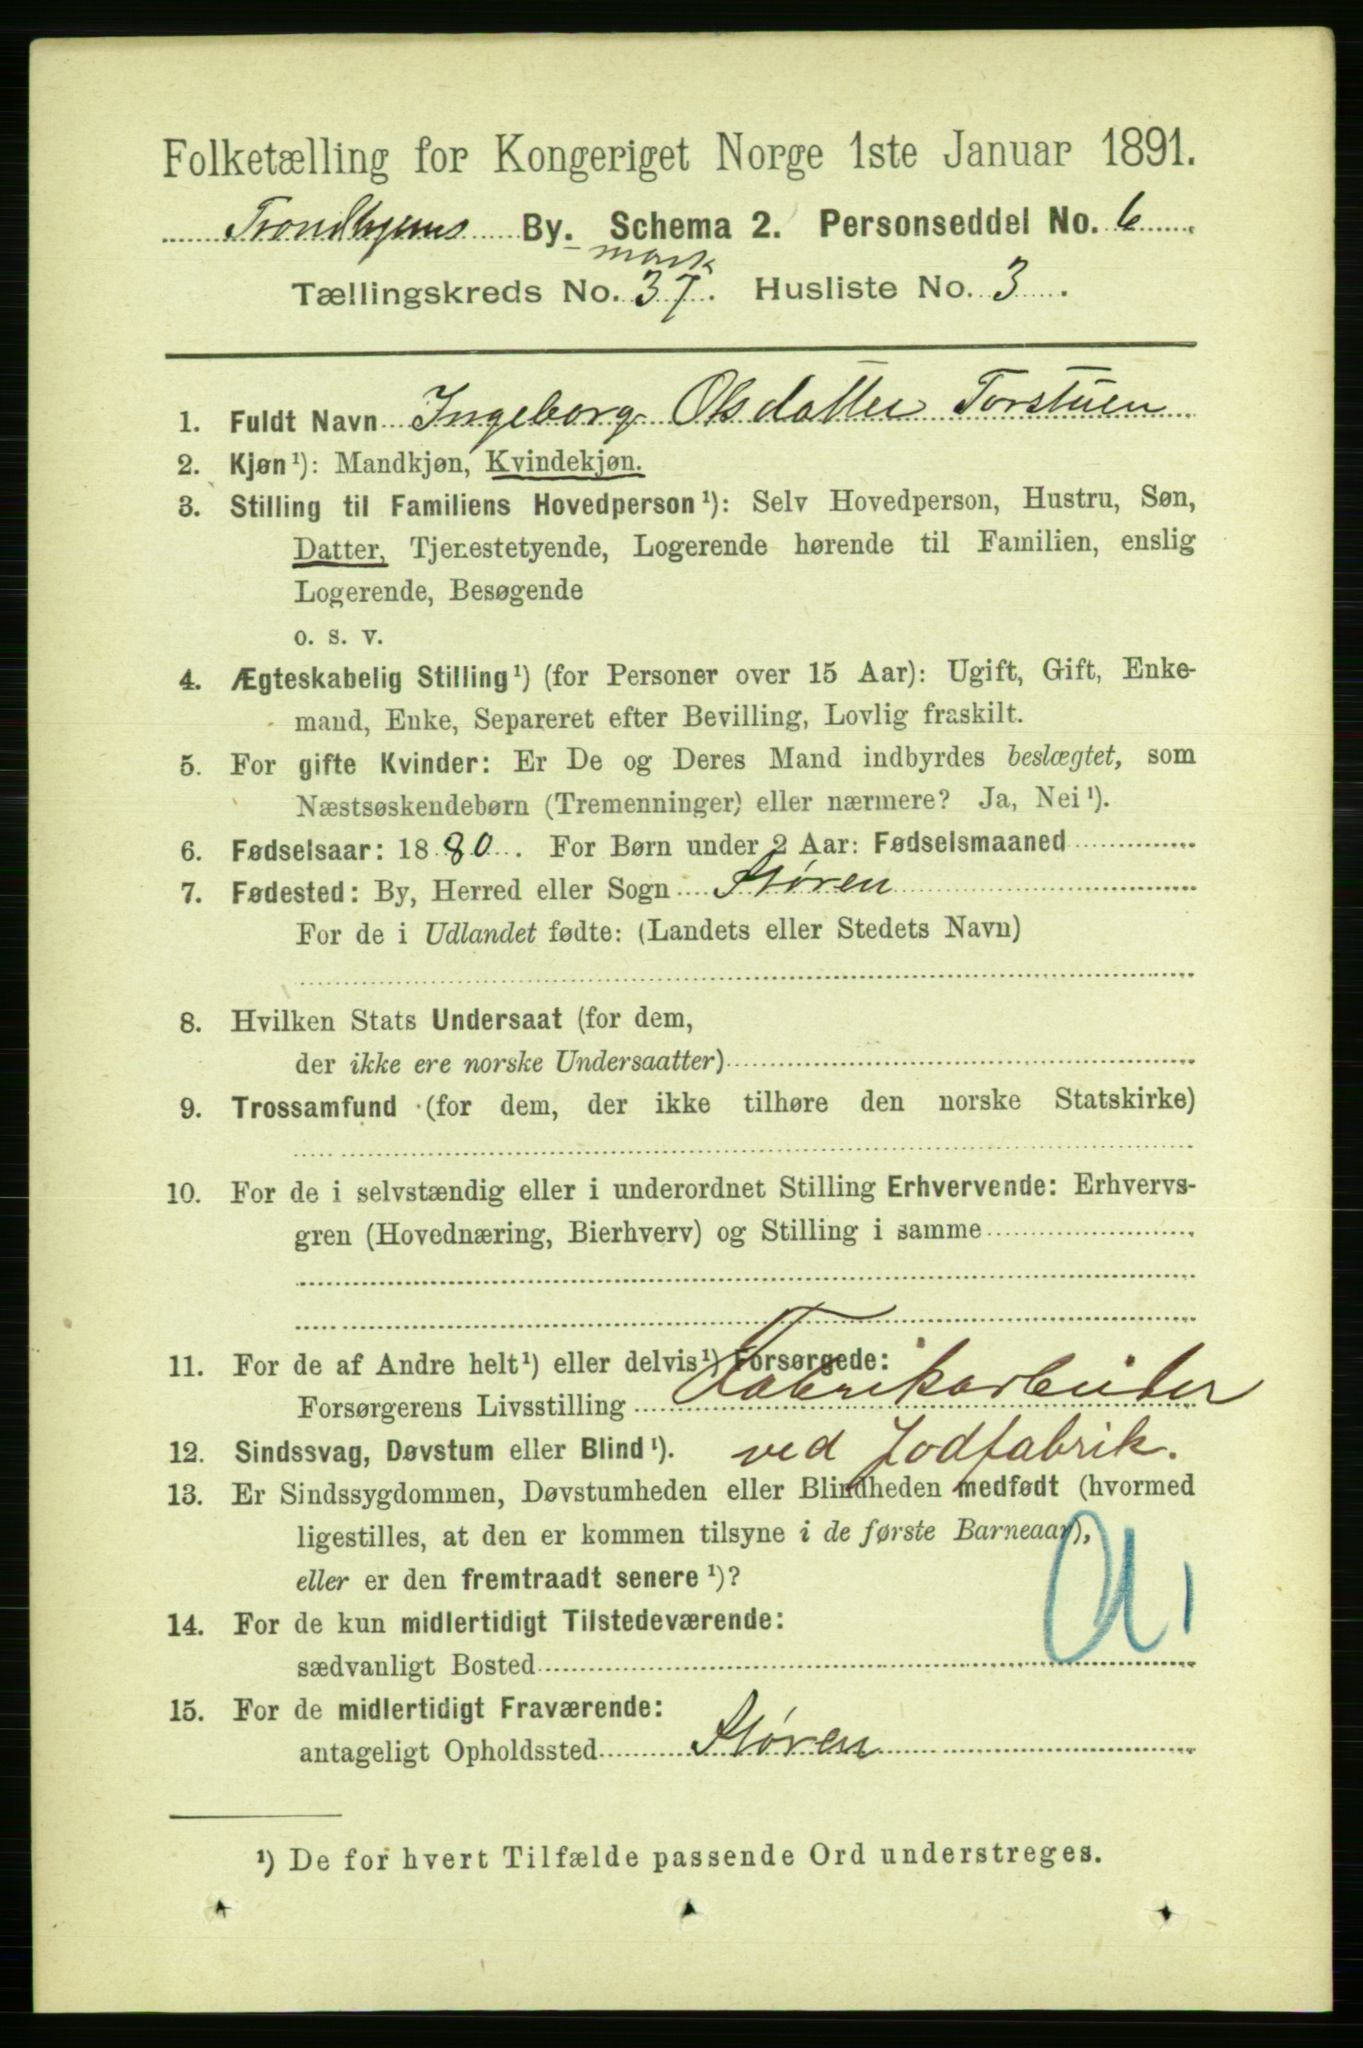 Folketælling for Kongeriget Norge 1ste Januar 1891.
Trondhjems By. Schema 2. Personseddel No. 6
mark
Tællingskreds No. 37. Husliste No. 3.
1. Fuldt Navn Ingeborg Olsdatter Torstuen
2. Kjøn¹): Mandkjøn, Kvindekjøn.
3. Stilling til Familiens Hovedperson¹): Selv Hovedperson, Hustru, Søn,
Datter, Tjenestetyende, Logerende hørende til Familien, enslig
Logerende, Besøgende
o. s. v.
4. Ægteskabelig Stilling¹) (for Personer over 15 Aar): Ugift, Gift, Enke-
mand, Enke, Separeret efter Bevilling, Lovlig fraskilt.
5. For gifte Kvinder: Er De og Deres Mand indbyrdes beslægtet, som
Næstsøskendebørn (Tremenninger) eller nærmere? Ja, Nei¹).
6. Fødselsaar: 1880. For Børn under 2 Aar: Fødselsmaaned
7. Fødested: By, Herred eller Sogn Støren
For de i Udlandet fødte: (Landets eller Stedets Navn)
8. Hvilken Stats Undersaat (for dem,
der ikke ere norske Undersaatter)
9. Trossamfund (for dem, der ikke tilhøre den norske Statskirke)
10. For de i selvstændig eller i underordnet Stilling Erhvervende: Erhvervs-
gren (Hovednæring, Bierhverv) og Stilling i samme
11. For de af Andre helt¹) eller delvis¹) Forsørgede:
Forsørgerens Livsstilling Fabrikarbeider
12. Sindssvag, Døvstum eller Blind¹). ved Jodfabrik.
13. Er Sindssygdommen, Døvstumheden eller Blindheden medfødt (hvormed
ligestilles, at den er kommen tilsyne i de første Barneaar),
eller er den fremtraadt senere¹)?
14. For de kun midlertidigt Tilstedeværende:
sædvanligt Bosted
15. For de midlertidigt Fraværende:
antageligt Opholdssted Støren
¹) De for hvert Tilfælde passende Ord understreges.